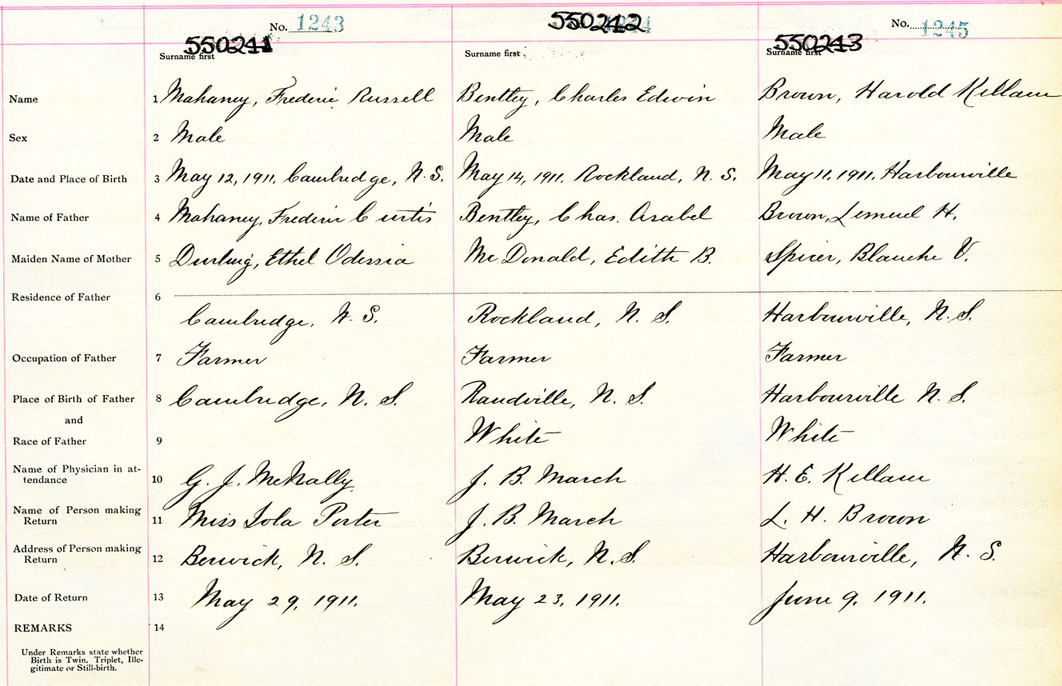 No. 1243 No. 1245
550241 550242 550243
Surname first Surname first Surname first
Name 1 Mahaney, Frederic Russell Bentley, Charles Edwin Brown, Harold Killam
Sex 2 Male Male Male
Date and Place of Birth 3 May 12, 1911. Cambridge, N.S. May 14, 1911. Rockland, N. S. May 11. 1911. Harbourville
Name of Father 4 Mahaney, Frederic Curtis Bentley, Chas. Asabel Brown, Lemuel H.
Maiden Name of Mother 5 Durling, Ethel Odessia Mc Donald, Edith B. Spicer, Blanche V.
Residence of Father 6
Cambridge, N. S. Rockland, N. S. Harbourville, N. S.
Occupation of Father 7 Farmer Farmer Farmer
Place of Birth of Father 8 Cambridge, N. S. Randville, N. S. Harbourville N. S.
and
Race of Father 9 White White
Name of Physician in at-
tendance 10 G. J. McNally J. B. March H. E. Killam
Name of Person making
Return 11 Miss Lola Porter J. B. March L. H. Brown
Address of Person making
Return 12 Berwick, N. S. Berwick, N.S. Harbourville, N. S.
Date of Return 13 May 29, 1911. May 23, 1911. June 9, 1911.
REMARKS 14
Under Remarks state whether
Birth is Twin, Triplet, Ille-
gitimate or Still-birth.